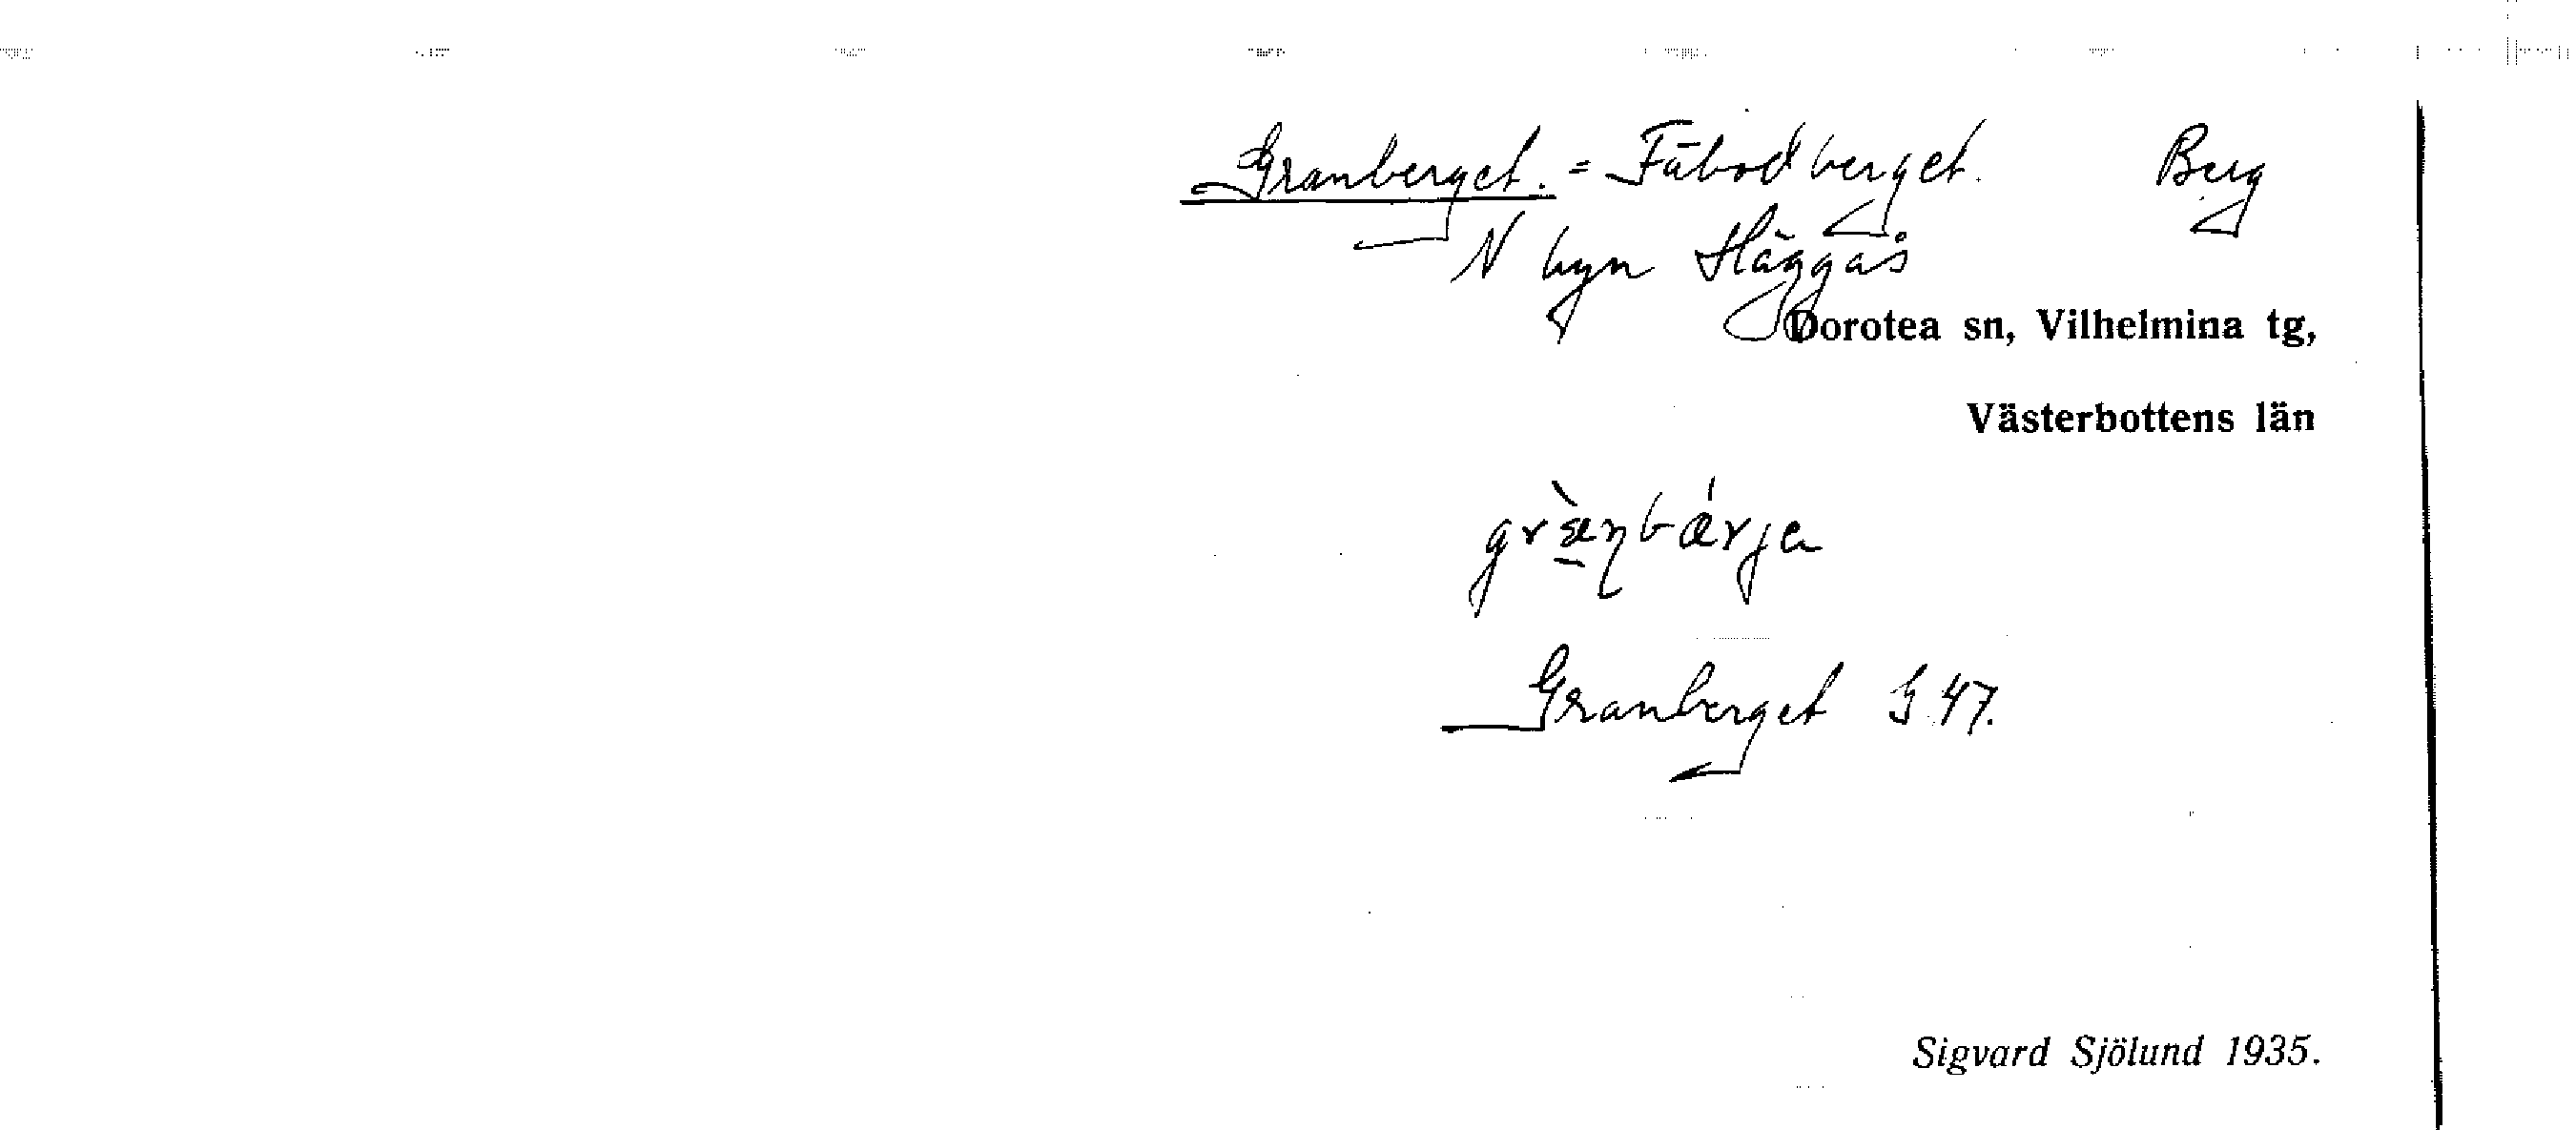 Granberget. = Fäbodberget. Berg
N byn Häggås
Dorotea sn, Vilhelmina tg,
Västerbottens län
Granberget G 47.
Sigvard Sjölund 1935.